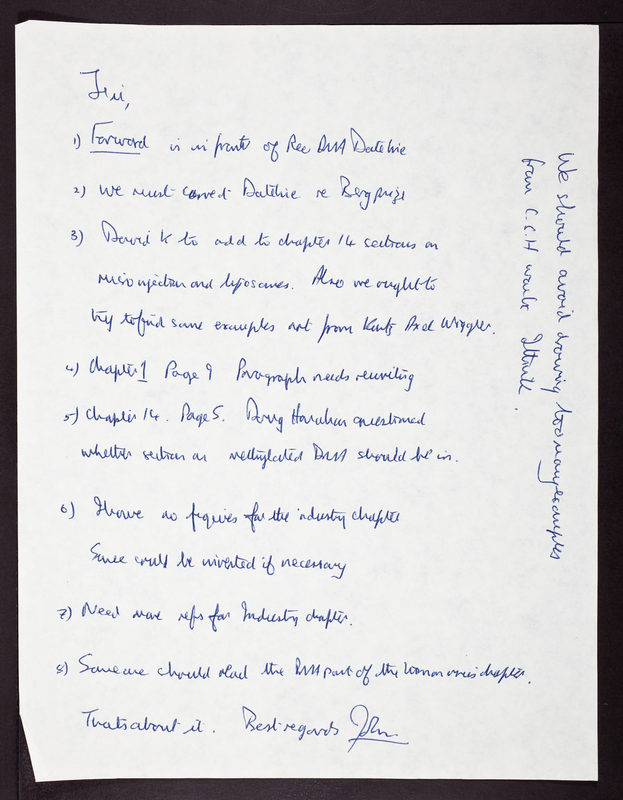 1) Forward is in front of Rec DNA Dateline
2) We must correct Dateline re Berg prize
3) David K to add to chapter 14 sections on
microinjection and liposomes. Also we ought to
try to find some examples not from Kurtz Axel Wiggler.
4) Chapter 1 Page 9 Paragraph needs rewriting
5) Chapter 14. Page 5. Doug Hanahan questioned
whether section on methylated DNA should be in.
6) I have no figures for the industry chapter
Some could be invented if necessary
7) Need more refs for Industry chapter.
8) Someone should read the DNA part of the tumor virus chapter.
Thats about it. Best regards John
We should avoid drawing too many examples
from C.S.H work I think.